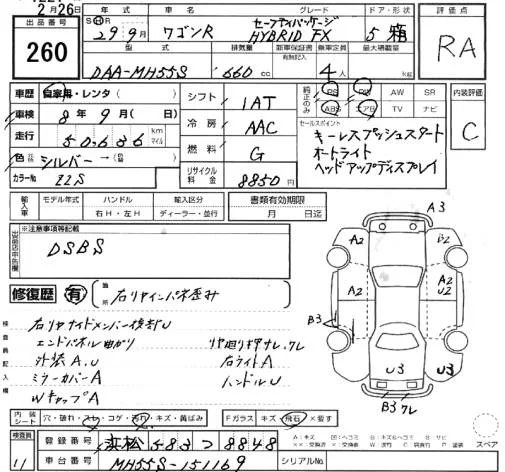 2月26日
出品番号
260
年式
車名
グレード
ドア・形状
評価点
29年9月
ワゴンR
セーフティパッケージ
HYBRID FX
5 箱
RA
型式
排気量
新車保証書
有無記入
乗車定員
最大積載量
DAA-MH55S
660 cc
4人
kg
車歴
自家用・レンタ(
車検
8年9月( 日)
走行
50,636 km
マイル
色
シルバー→(色替
カラーNo
ZZS
シフト
IAT
冷房
AAC
燃料
G
リサイクル料金
8850円
純正のみ
PS PW AW SR
ABS エアB TV ナビ
セールスポイント
キーレスプッシュスタート
オートライト
ヘッドアップディスプレイ
内装評価
C
輸入車
モデル年式
ハンドル
右H・左H
輸入区分
ディーラー・並行
書類有効期限
月 日迄
出品店申告欄
※注意事項等記載
DSBS
修復歴 有
箇所
右リヤインパネ歪み
検査員記入欄
右リヤサイドメンバー修キズU
エンドパネル曲がり
外装A.U
ミラーカバーA
WキャップA
リヤ廻り押サレ、クレ
右ライトA
ハンドルU
A3
A2
B2
A2
A2
U2
B3
U3
U3
B3 クレ
内装シート
穴・破れ・スレ・コゲ・汚れ・キズ・黄ばみ
Fガラス
キズ・飛石・×要す
検査員
11
登録番号
浜松 583 つ 8848
車台番号
MH55S-151169
シリアルNo.
スペア